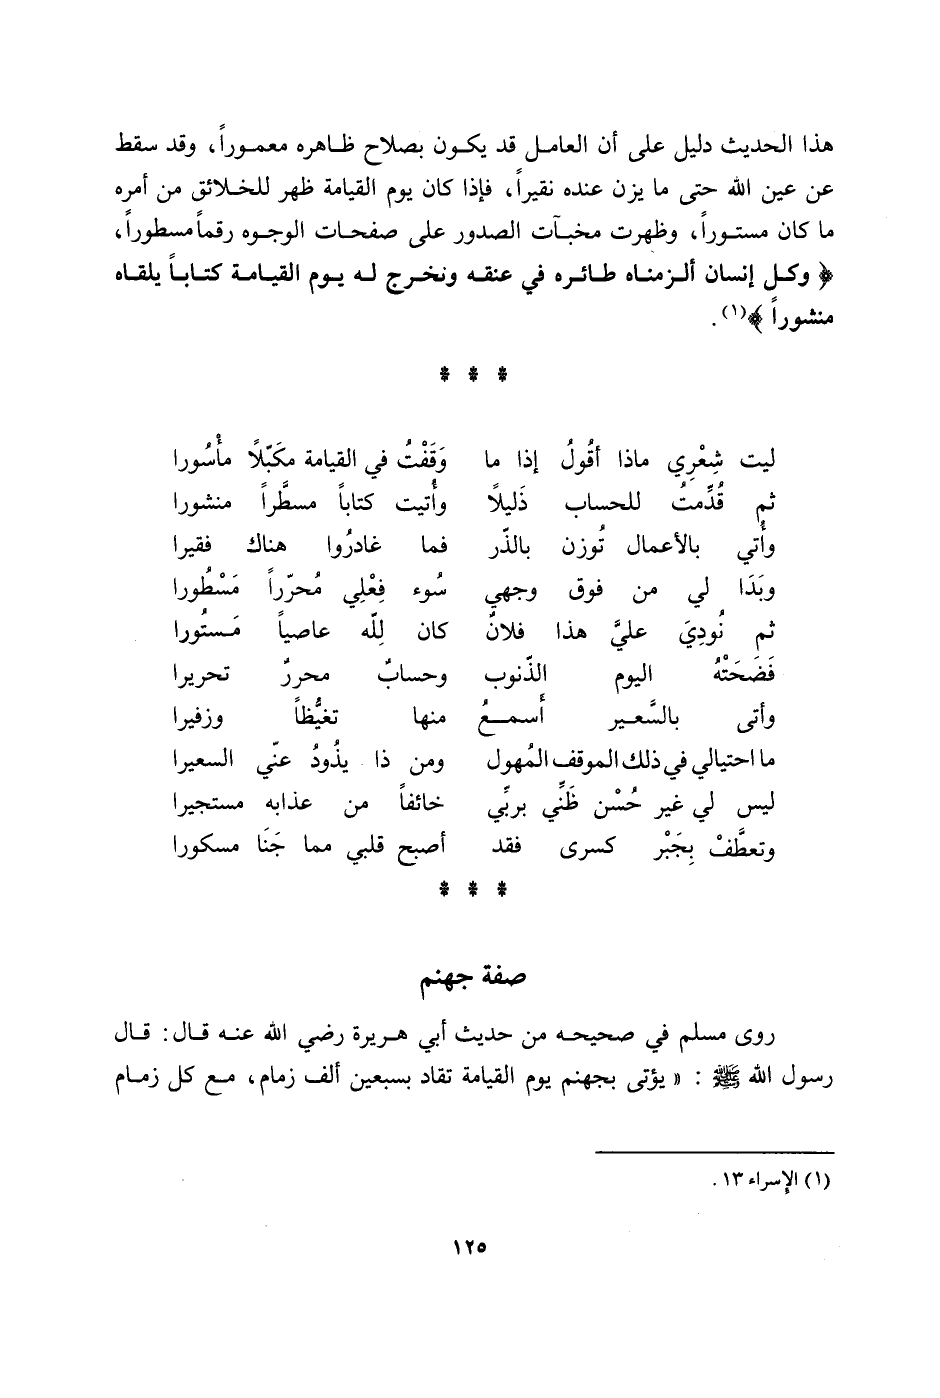 هذا الحديث دليل على أن العامل قد يكون بصلاح ظاهره معموراً، وقد سقط
عن عين الله حتى ما يزن عنده نقيراً، فإذا كان يوم القيامة ظهر للخلائق من أمره
ما كان مستوراً، وظهرت مخبآت الصدور على صفحات الوجوه رقماً مسطوراً،
﴿ وكل إنسان ألزمناه طائره في عنقه ونخرج له يوم القيامة كتاباً يلقاه
منشوراً ﴾(١).
* * *
ليت شِعْرِي ماذا أقُولُ إذا ما وَقَفْتُ في القيامة مكَبّلاً مأْسُورا
ثم قُدِّمتُ للحساب ذَليلاً وأُتيت كتاباً مسطَّراً منشورا
وأُتي بالأعمال تُوزن بالذّر فما غادرُوا هناك فقيرا
وبَدَا لي من فوق وجهي سُوء فِعْلِي مُحرّراً مَسْطُورا
ثم نُودِيَ عليَّ هذا فلانٌ كان لِلّه عاصياً مَستُورا
فَضَحَتْهُ اليوم الذّنوب وحسابٌ محررٌ تحريرا
وأتى بالسَّعير أَسمعُ منها تغيُّظاً وزفيرا
ما احتيالي في ذلك الموقف المُهول ومن ذا يذُودُ عنّي السعيرا
ليس لي غير حُسْن ظَنِّي بربِّي خائفاً من عذابه مستجيرا
وتعطَّفْ بِجَبْر كسرى فقد أصبح قلبي مما جَنَا مسكورا
* * *
صفة جهنم
روى مسلم في صحيحه من حديث أبي هريرة رضي الله عنه قال: قال
رسول الله ﷺ : « يؤتى بجهنم يوم القيامة تقاد بسبعين ألف زمام، مع كل زمام
(١) الإسراء ١٣ .
١٢٥